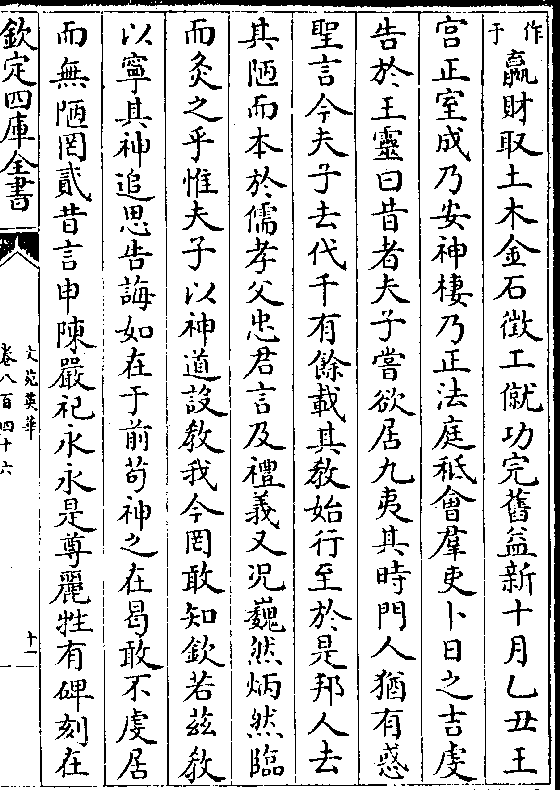 作于
羸財取土木金石徵工僦功完舊益新十月乙丑王
宫正室成乃安神棲乃正法庭祗會羣吏卜日之吉虔
告於王靈曰昔者夫子嘗欲居九夷其時門人猶有惑
聖言今夫子去代千有餘載其教始行至於是邦人去
其陋而本於儒孝父忠君言及禮義又况巍然炳然臨
而炙之乎惟夫子以神道設教我今罔敢知欽若兹教
以寧其神追思告誨如在于前苟神之在曷敢不虔居
而無陋罔貳昔言申陳嚴祀永永是尊麗牲有碑刻在
欽定四庫全書
文苑英華
卷八百四十六
十一